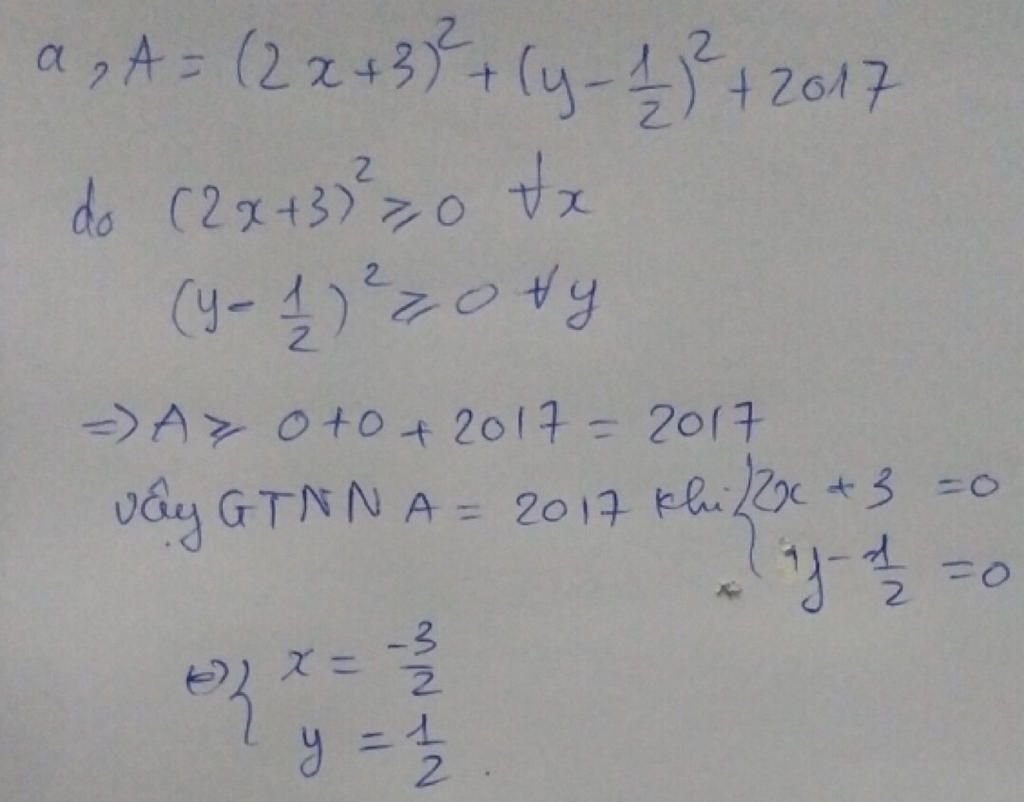 a, A = (2x+3)² + (y - 1/2)² + 2017
do (2x+3)² ⩾ 0 ∀x
(y - 1/2)² ⩾ 0 ∀y
=> A ⩾ 0 + 0 + 2017 = 2017
vậy GTNN A = 2017 khi { 2x + 3 = 0
y - 1/2 = 0
⇔ { x = -3/2
y = 1/2 .